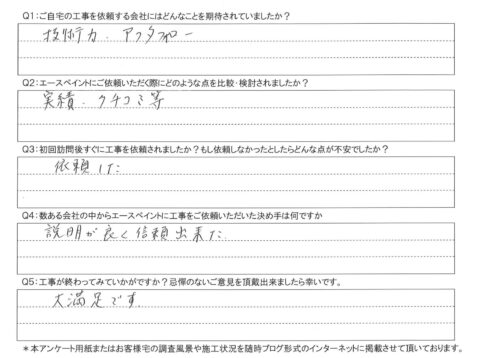 Q1:ご自宅の工事を依頼する会社にはどんなことを期待されていましたか？
技術力．アフタフォロー
Q2:エースペイントにご依頼いただく際にどのような点を比較・検討されましたか？
実績．クチコミ等
Q3:初回訪問後すぐに工事を依頼されましたか？もし依頼しなかったとしたらどんな点が不安でしたか？
依頼した
Q4:数ある会社の中からエースペイントに工事をご依頼いただいた決め手は何ですか
説明が良く信頼出来た．
Q5:工事が終わってみていかがですか？忌憚のないご意見を頂戴出来ましたら幸いです。
大満足です
＊本アンケート用紙またはお客様宅の調査風景や施工状況を随時ブログ形式のインターネットに掲載させて頂いております。